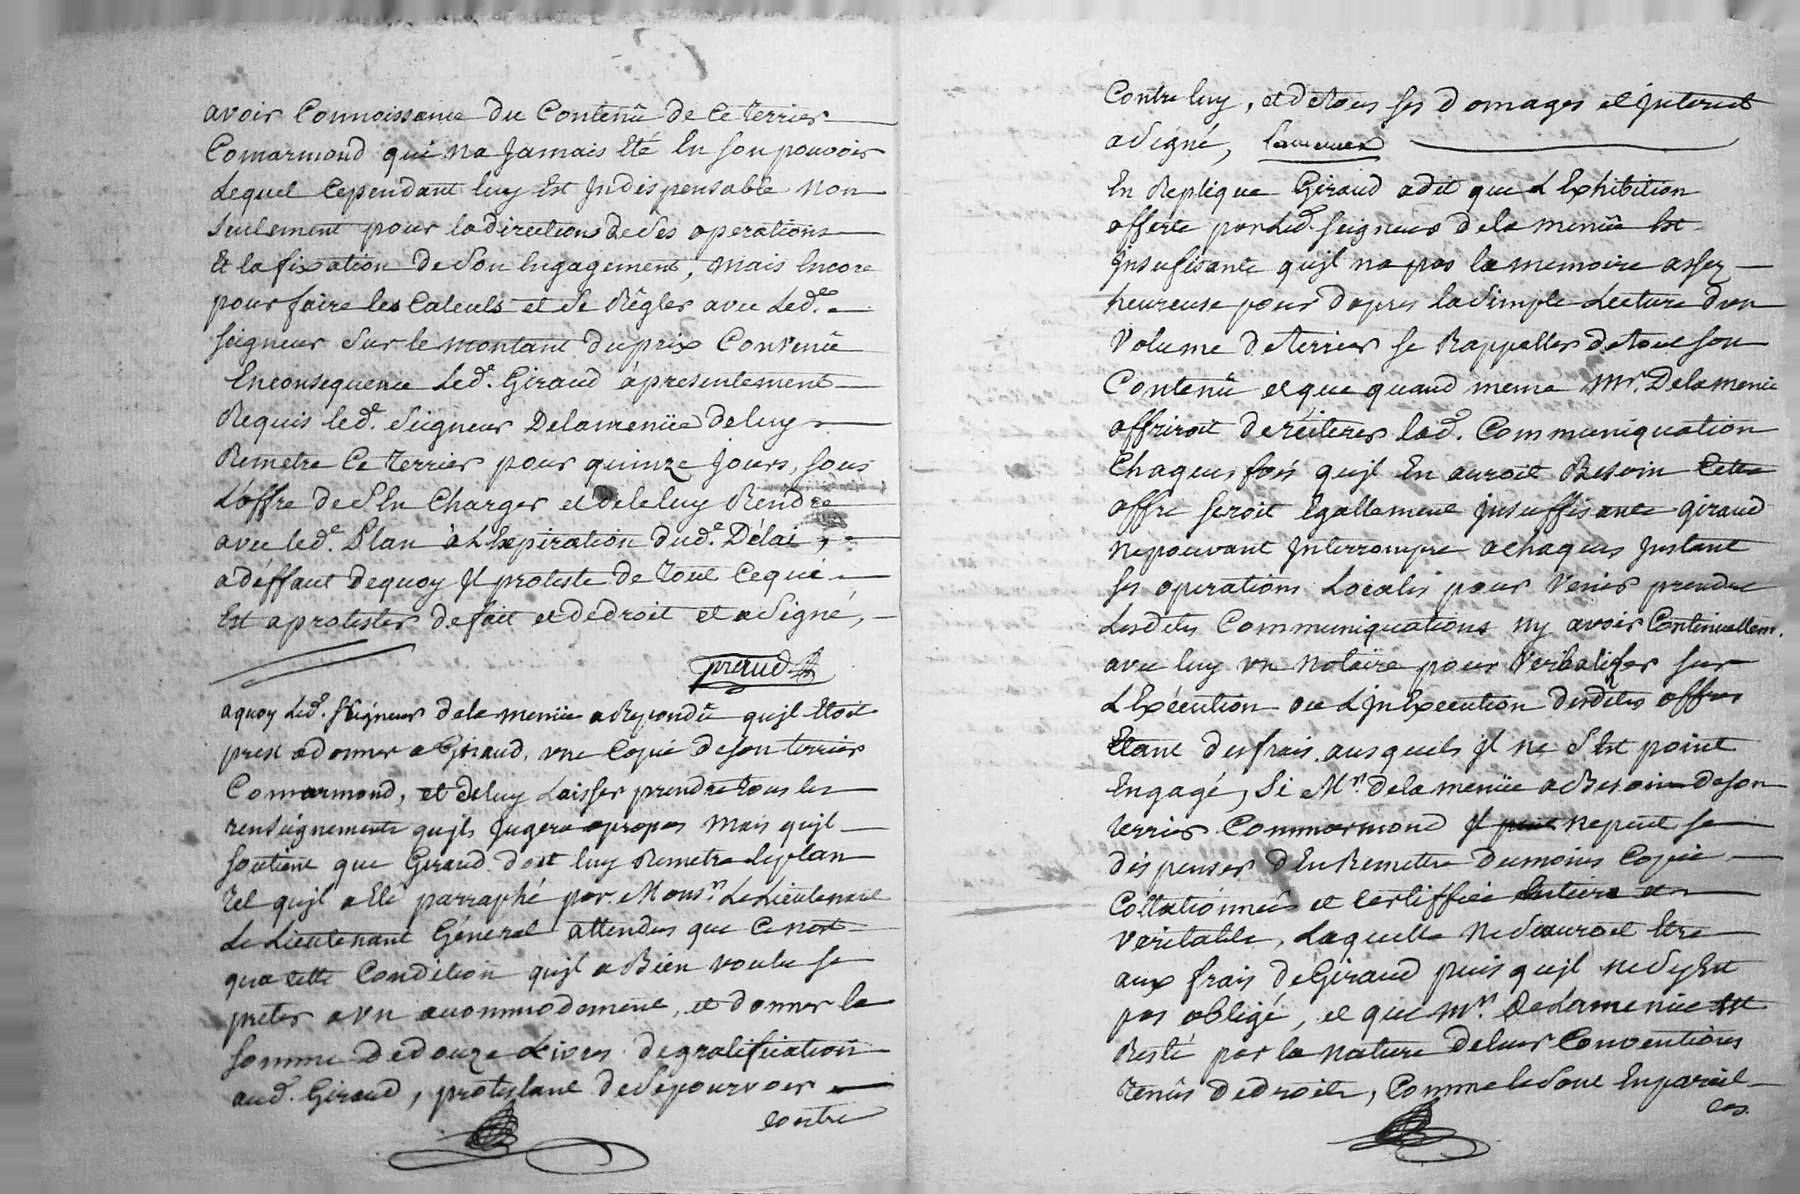 avoir Connoissance du Contenû de Ce terrier
Comarmond qui na Jamais Eté En son pouvoir
Lequel Cependant luy Est Indispensable non
Seulement pour la direction de Ses operations
Et la fixation de Son Engagement, mais Encore
pour faire les Calculs et Se Régler avec Led.
Seigneur Sur le montant du prix Convenû
Enconsequence Led. Giraud à presentement
Requis led. Seigneur Delamenüe de luy
Remetre Ce terrier pour quinze Jours, sous
L'offre de S'En Charger et de le luy Rendre
avec led. Plan à L'Expiration dud. Délai,
a déffaut dequoy Il proteste de tout Cequi
Est a protester de fait et de droit et a Signé,
aquoy Led. Seigneur dela menüe a Repondû quil Etoit
prest a donner a Giraud, une Copie de son terrier
Comarmond, et de luy Laisser prendre tous les
renseignements quils Jugera apropos mais quil
soutient que Giraud doit luy Remetre Le plan
tel quil a Eté parraphé par Monsr. Le Lieutenant
Le Lieutenant Géneral attendus que Ce nest
qua cette Condition quil a Bien voulu se
preter a un acommodement, et donner la
somme de douze Livres de gratification
aud. Giraud, protestant de Se pourvoir
contre
Contre luy, et de tous ses domages et Interest
a Signé,
En Replique Giraud a dit que L'Exhibition
offerte par Led. Seigneur de la menüe Est
Insufisante quil na pas la memoire assez
heureuse pour dapres la Simple Lecture d'un
Volume de terrier se Rappeller de tout son
Contenû et que quand meme Mr. Delamenüe
offriroit de réiterer lad. Communiquation
Chaques fois quil En auroit Besoin Cette
offre seroit Egallement Insuffisante giraud
ne pouvant Interrompre a chaques Instant
ses operations Locales pour Venir prendre
Lesdites Communiquations ny avoir Continuellem.
avec luy un notaire pour Verbaliser sur
L'Exécution ou L'InExecution desdites offres
Etant des frais ausquels il ne S'Est point
Engagé, Si Mr. de la menüe a Besoin de son
terrier Commarmond Il ne peut se
dispenser d'En Remettre du moins Copie
Collationnée et Certiffiée Entiere et
veritable, Laquelle ne Sauroit Etre
aux frais de Giraud puis quil ne Sy Est
pas obligé, et que Mr. De Lamenüe Est
Resté par la nature de leur Conventions
tenûs de droit, Comme le Sont En pareil
cas.